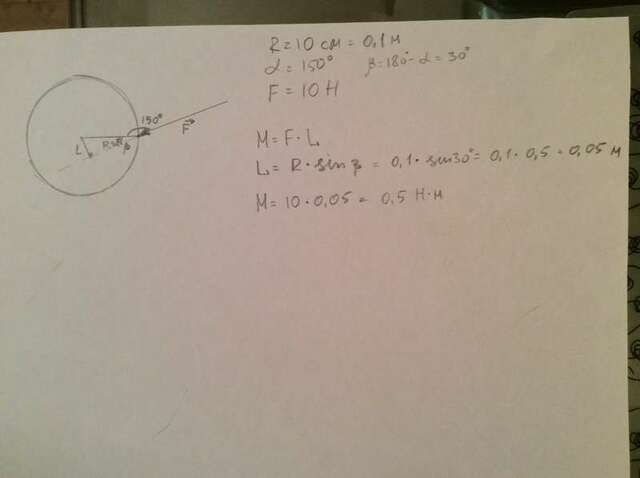 R = 10 см = 0,1 м
α = 150° β = 180° - α = 30°
F = 10 Н
150°
F
R
β
L
M = F · L
L = R · sin β = 0,1 · sin 30° = 0,1 · 0,5 = 0,05 м
M = 10 · 0,05 = 0,5 Н·м